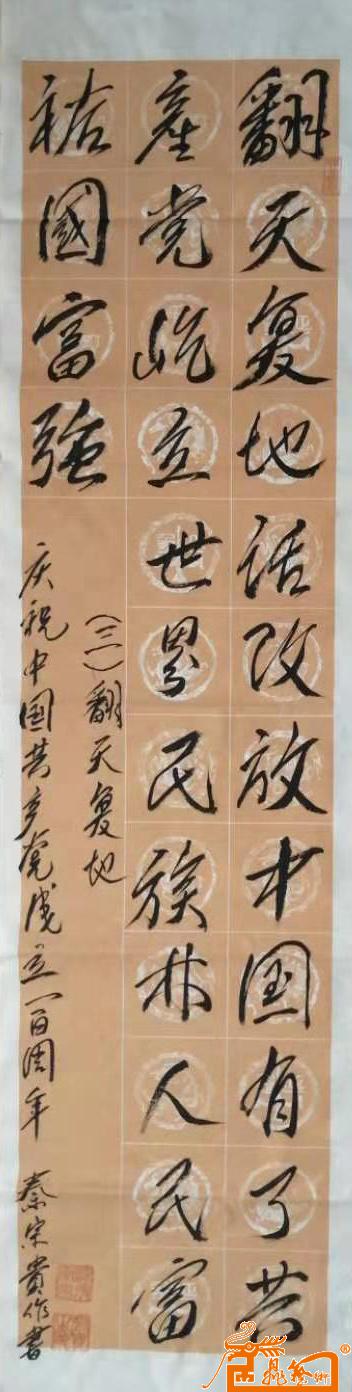 翻天复地话改放中国有了共
产党屹立世界民族林人民富
祐國富强
(三一)翻天复地
庆祝中国共产党成立一百周年 秦宗贵作書